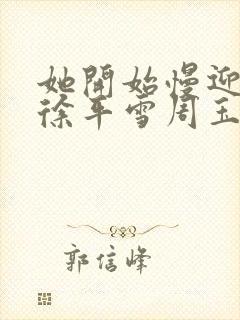 她開始慢迎
徐平雪周玉
郭信峰